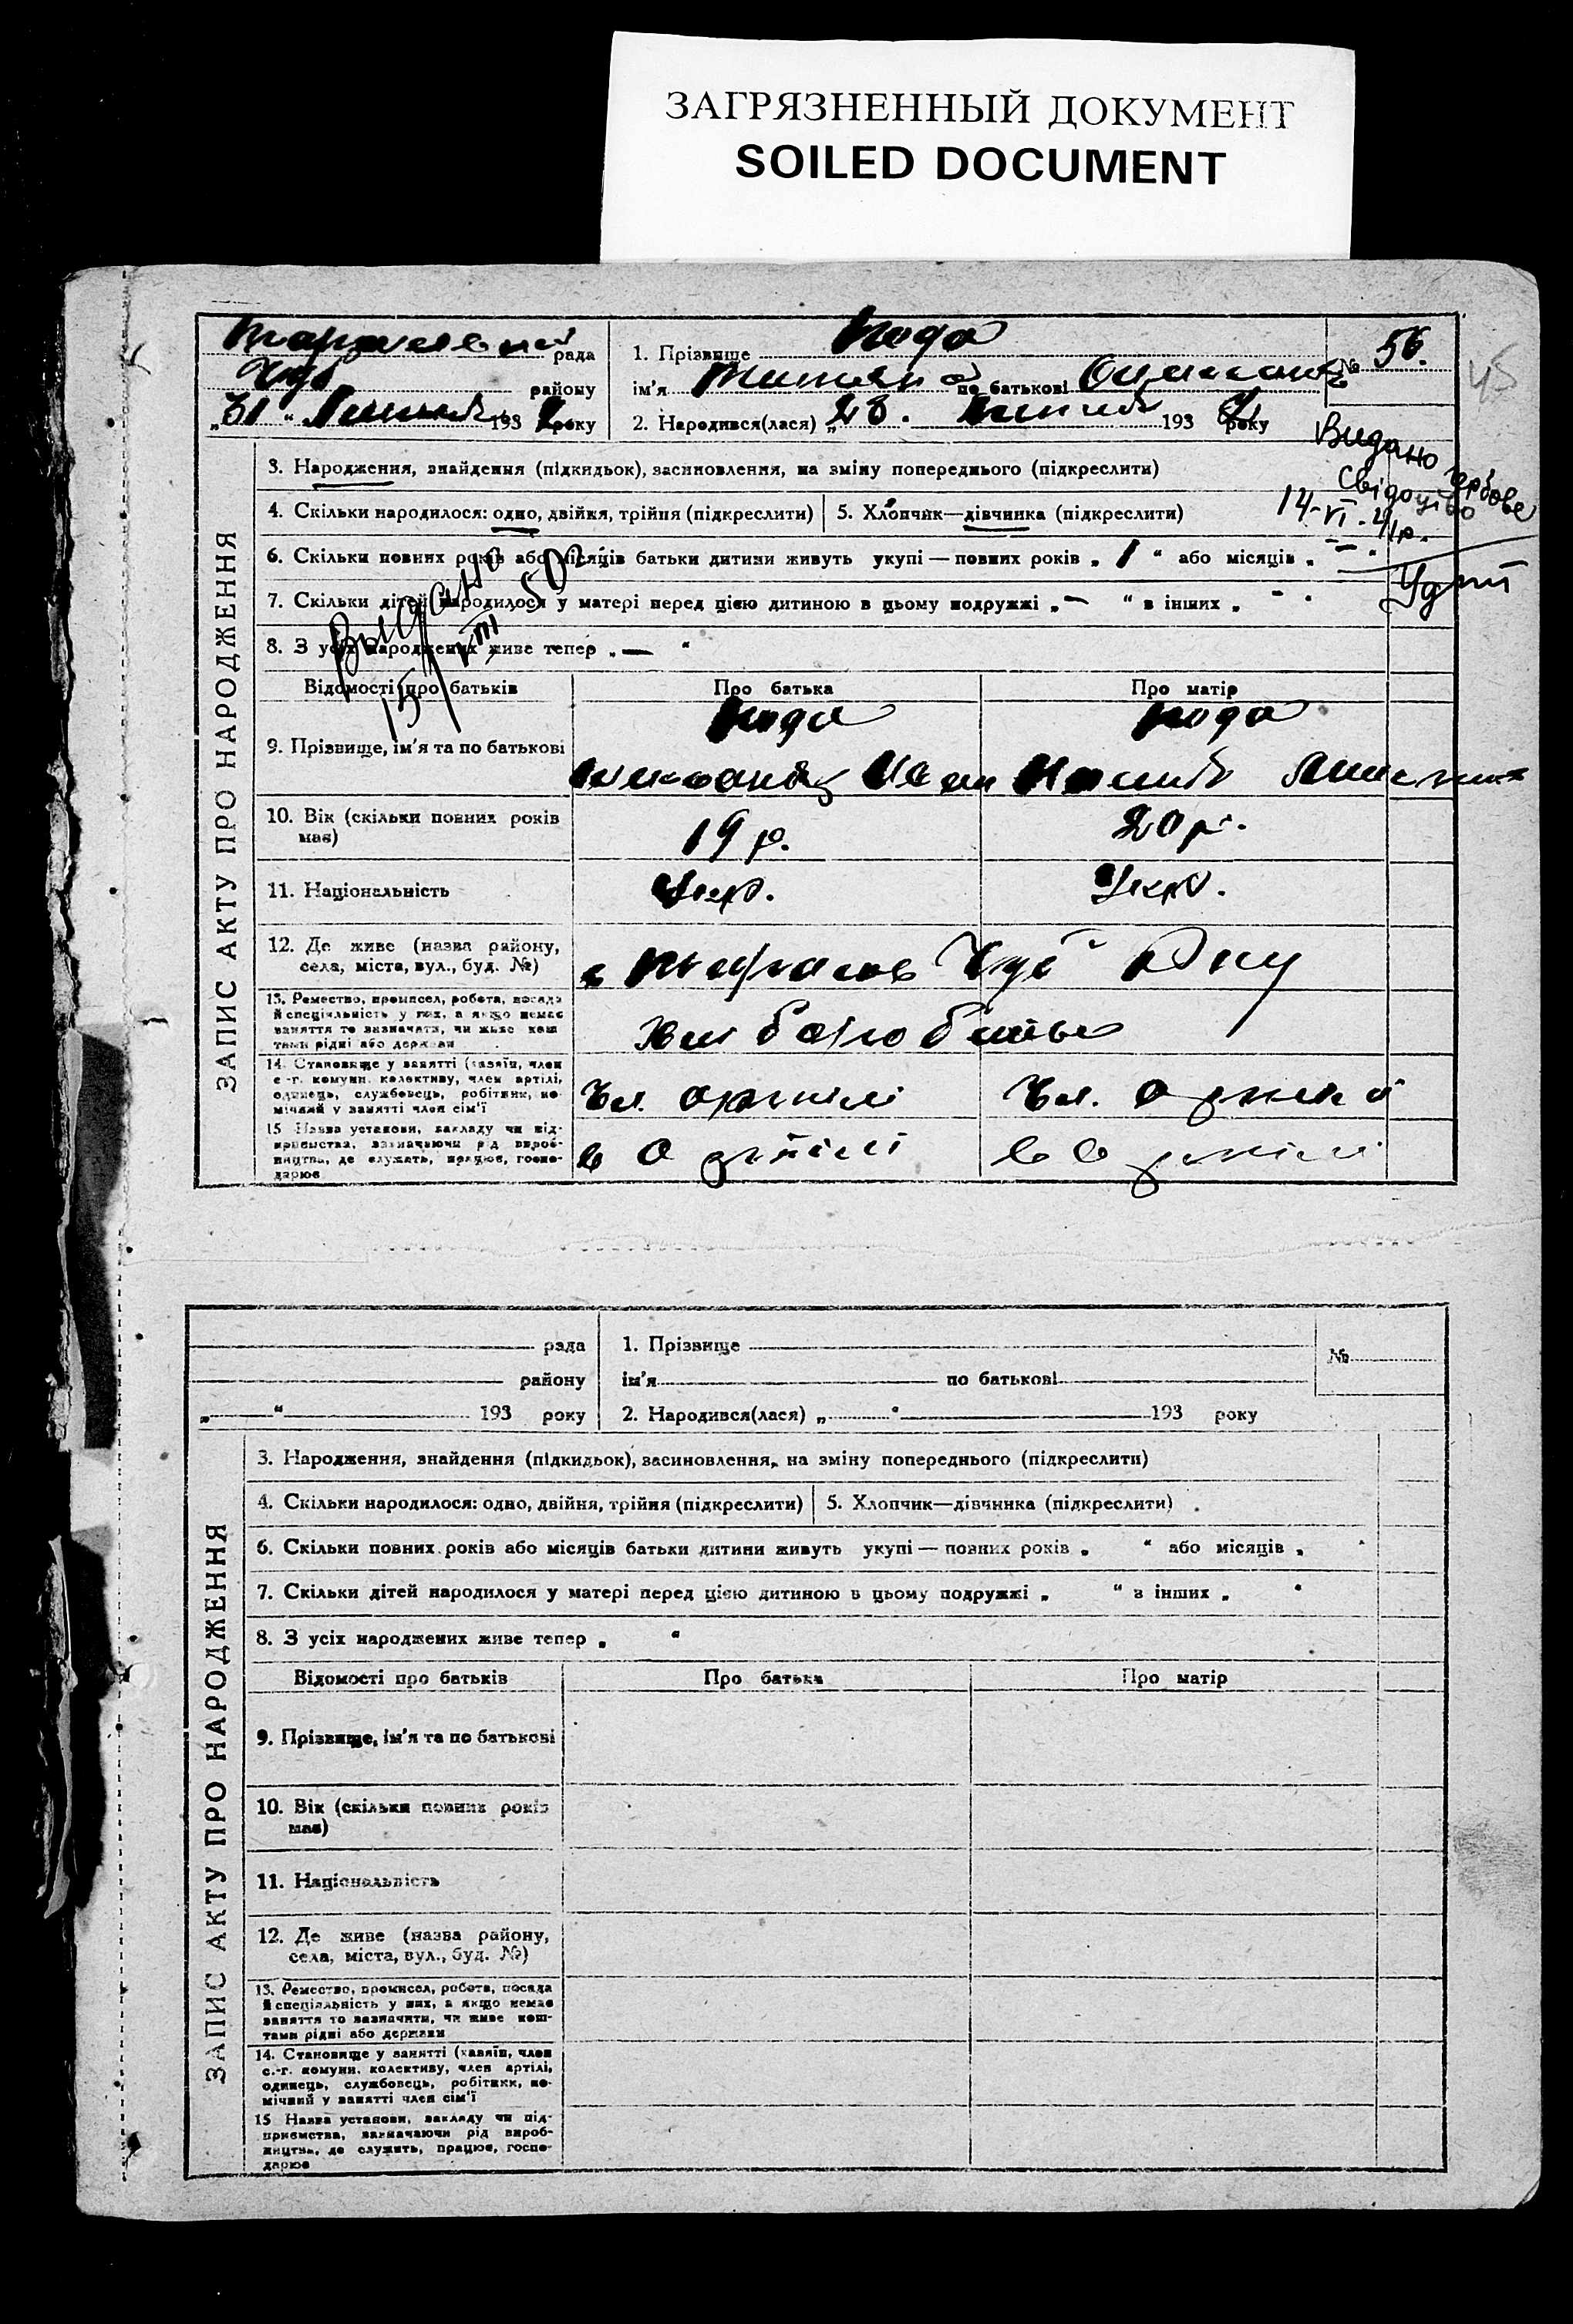 ЗАГРЯЗНЕННЫЙ ДОКУМЕНТ
SOILED DOCUMENT
рада
району
„31“ 193 року
1. Прізвище
ім'я по батькові
2. Народився(лася) „28. 193 року
№ 56.
45
Видано
свідоцтво
14-VI-41р.
ЗАПИС АКТУ ПРО НАРОДЖЕННЯ
3. Народження, знайдення (підкидьок), засиновлення, на зміну попереднього (підкреслити)
4. Скільки народилося: одно, двійня, трійня (підкреслити)
5. Хлопчик—дівчинка (підкреслити)
6. Скільки повних років або місяців батьки дитини живуть укупі — повних років „ 1 “ або місяців „ — “
7. Скільки дітей народилося у матері перед цією дитиною в цьому подружжі „ — “ в інших „ - “
8. З усіх народжених живе тепер „ — “
Выдано
15/VIII 50
Відомості про батьків
Про батька
Про матір
9. Прізвище, ім'я та по батькові
10. Вік (скільки повних років має)
19 р.
20 р.
11. Національність
Укр.
Укр.
12. Де живе (назва району, села, міста, вул., буд. №)
13. Ремество, промисел, робота, посада й спеціяльність у них, а якщо немає заняття то визначити, чи живе коштами рідні або держави
Хліборобство
14. Становище у занятті (хазяїн, член с.-г. комуни, колективу, член артілі, одинець, службовець, робітник, помічний у занятті член сім'ї
Чл. артілі
Чл. артілі
15 Назва установи, закладу чи підприємства, зазначаючи рід виробництва, де служить, працює, господарює
в артілі
в артілі
рада
району
„ “ 193 року
1. Прізвище
ім'я по батькові
2. Народився(лася) „ “ 193 року
№
ЗАПИС АКТУ ПРО НАРОДЖЕННЯ
3. Народження, знайдення (підкидьок), засиновлення, на зміну попереднього (підкреслити)
4. Скільки народилося: одно, двійня, трійня (підкреслити)
5. Хлопчик—дівчинка (підкреслити)
6. Скільки повних років або місяців батьки дитини живуть укупі — повних років „ “ або місяців „ “
7. Скільки дітей народилося у матері перед цією дитиною в цьому подружжі „ “ в інших „ “
8. З усіх народжених живе тепер „ “
Відомості про батьків
Про батька
Про матір
9. Прізвище, ім'я та по батькові
10. Вік (скільки повних років має)
11. Національність
12. Де живе (назва району, села, міста, вул., буд. №)
13. Ремество, промисел, робота, посада й спеціяльність у них, а якщо немає заняття то визначити, чи живе коштами рідні або держави
14. Становище у занятті (хазяїн, член с.-г. комуни, колективу, член артілі, одинець, службовець, робітник, помічний у занятті член сім'ї
15 Назва установи, закладу чи підприємства, зазначаючи рід виробництва, де служить, працює, господарює